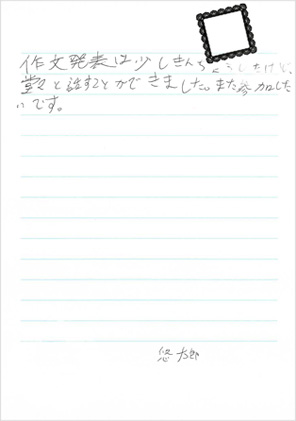 作文発表は少しきんちょうしたけど、
堂々と話すことができました。また参加した
いです。
悠太郎